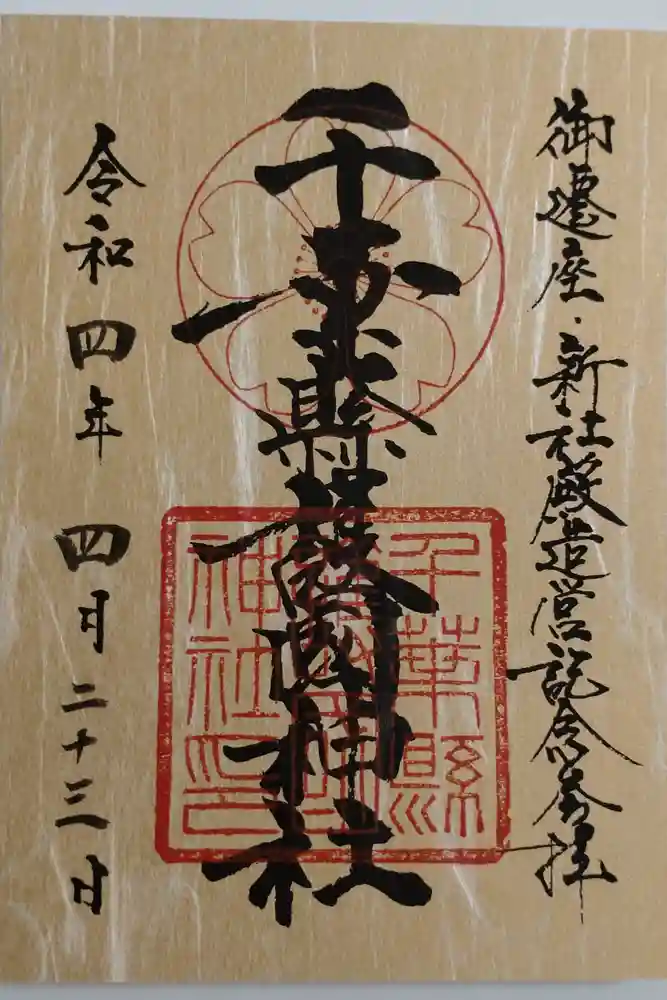 御遷座・新社殿造営記念参拝
千葉縣護國神社
令和四年四月二十三日
千葉縣
護國
神社印